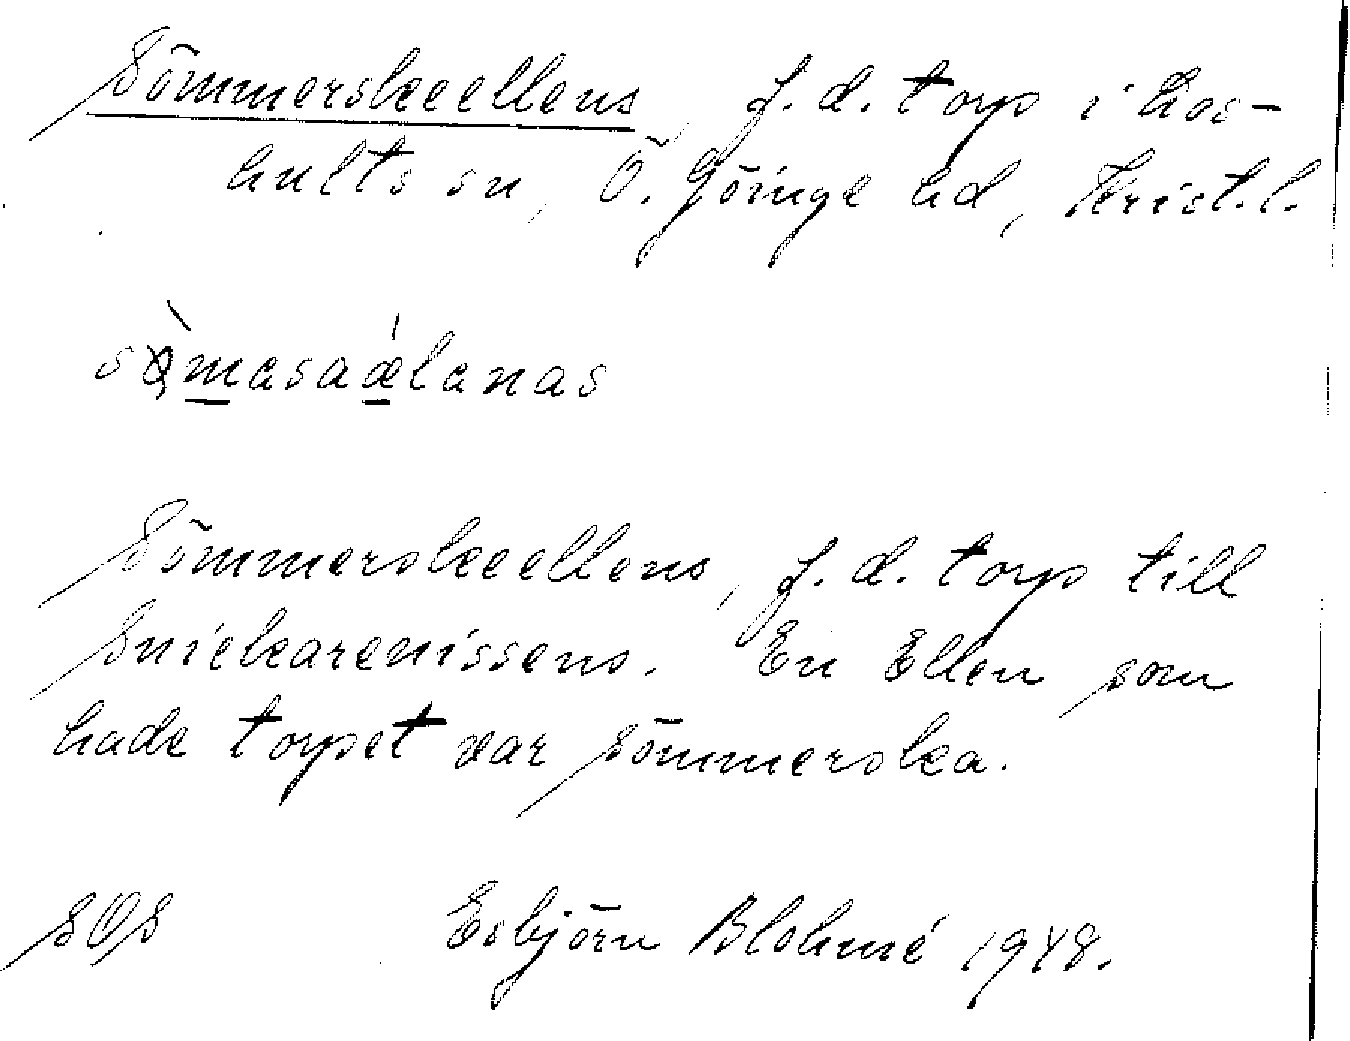 Sömmerskeellens, f.d. torp i Los-
hults sn, Ö. Göinge hd, Krist.l.
Sömmerskeellens, f.d. torp till
Snickarenissens. En Ellen som
hade torpet var sömmerska.
SOS Esbjörn Blohmé 1948.